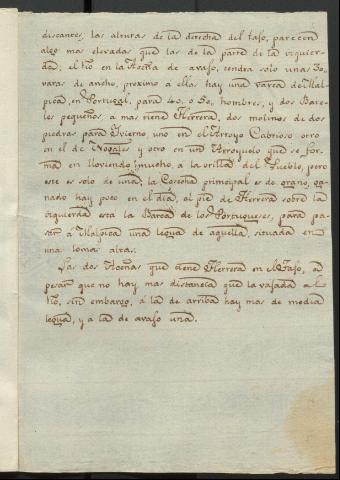 discantes, las alturas de la derecha del Tajo, parecen
algo mas elevadas que las de la parte de la izquier-
da; el Rio en la Aceña de avajo, tendra solo unas 30,
varas de ancho, proximo á ellas hay una varca de Mal-
pica, en Portugal, para 40, o 50, hombres, y dos Bate-
les pequeños, á mas tiene Herrera, dos molinos de dos
piedras para Ivierno, uno en el Arroyo Cabrioso otro
en el de Nogales y otro en un Arroyuelo que se for-
ma en lloviendo mucho, á la orilla del Pueblo, pero
este es solo de una, la Cosecha principal es de grano, ga-
nado hay poco en el dia, al pie de Herrera sobre la
izquierda esta la Barca de los Portugueses, para pa-
sar á Malpica una legua de aquella, situada en
una loma alta.
Las dos Aceñas que tiene Herrera en el Tajo, á
pesar que no hay mas distancia que la vajada al
rio, sin embargo, á la de arriba hay mas de media
legua, y a la de avajo una.